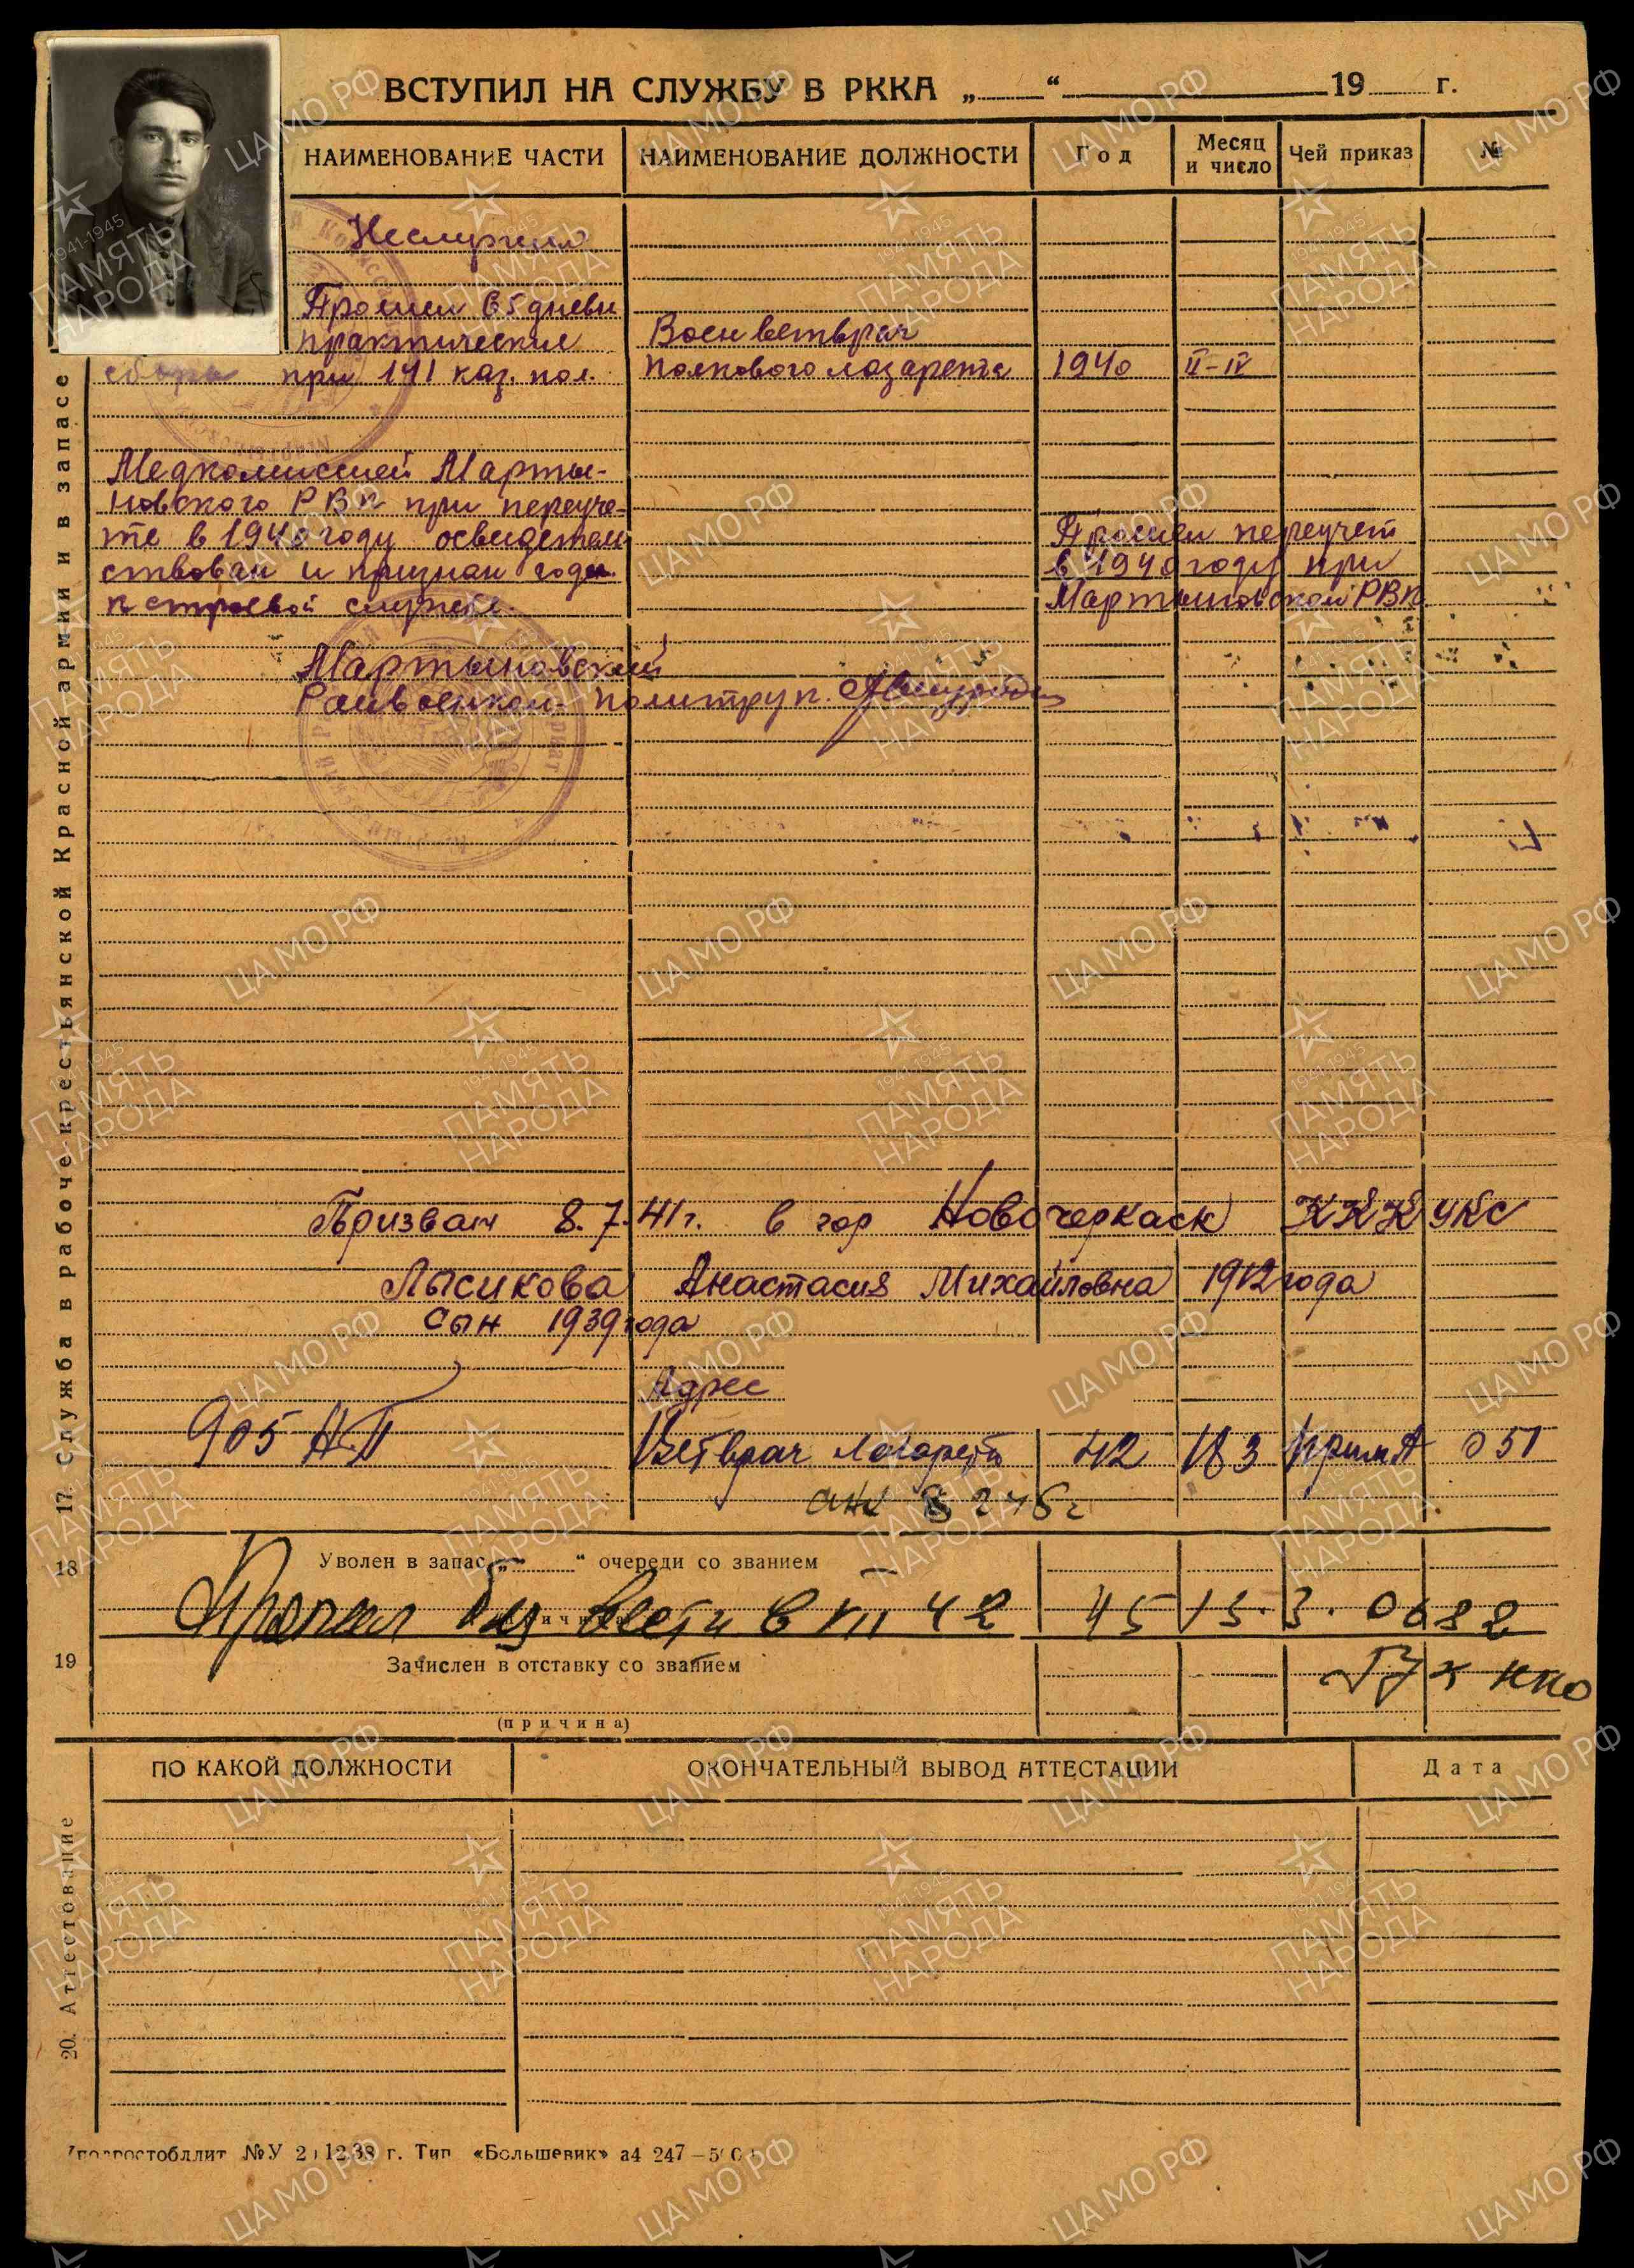 ВСТУПИЛ НА СЛУЖБУ В РККА „ “ 19 г.
НАИМЕНОВАНИЕ ЧАСТИ НАИМЕНОВАНИЕ ДОЛЖНОСТИ Год Месяц и число Чей приказ №
Неслужил
Прошел 65 дневн
практические Военветврач
сборы при 141 каз. пол. полкового лазарета 1940 II-IV
Медкомиссией Марты-
новского РВК при переуче-
те в 1940 году освидетель
ствован и признан годн.
к строевой службе.
Прошел переучет
в 1940 году при
Мартыновском РВК.
Мартыновский
Райвоенком- политрук.
Призван 8.7.41г. в гор Новочеркаск ККК УКС
Лысикова Анастасия Михайловна 1912 года
сын 1939 года
Адрес
905 АП Ветврач лазарета 42 18 3 051
17. Служба в рабоче-крестьянской Красной армии и в запасе
18 Уволен в запас „ “ очереди со званием
(причина)
Пропал без вести в III 42 45 15. 3. 0682
ГУК НКО
19 Зачислен в отставку со званием
(причина)
ПО КАКОЙ ДОЛЖНОСТИ ОКОНЧАТЕЛЬНЫЙ ВЫВОД АТТЕСТАЦИИ Дата
20. Аттестование
№У 12 38 г. Тип «Большевик» а4 247
ЦА МО РФ
1941-1945
ПАМЯТЬ
НАРОДА